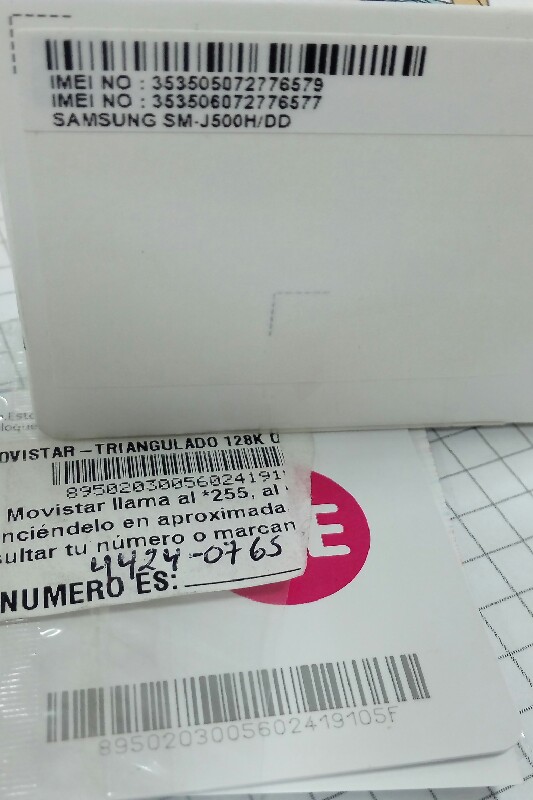 IMEI NO : 353505072776579
IMEI NO : 353506072776577
SAMSUNG SM-J500H/DD
OVISTAR - TRIANGULADO 128K
8950203005602419
Movistar llama al *255, al
nciéndelo en aproximada
sultar tu número o marcan
4424-0765
NUMERO ES:
E
8950203005602419105F